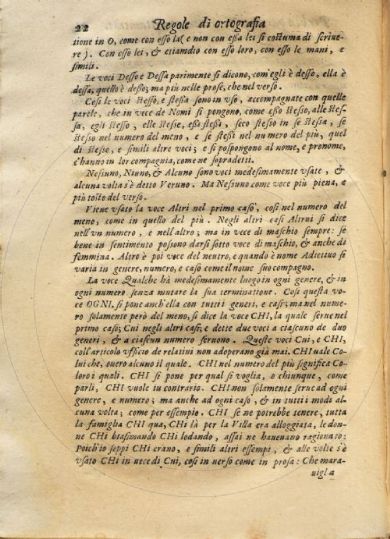 22 Regole di ortografia
tione in O, come con esso la (e non con essa lei si costuma di scriue-
re). Con esso lei, & etiamdio con esso loro, con esso le mani, e
simili.
Le voci Desso e Dessa parimente si dicono, com'egli è desso, ella è
dessa, quello è desso; ma più nelle prose, che nel verso.
Cosi le voci stesso, e stessa sono in vso, accompagnate con quelle
parole, che in vece de Nomi si pongono, come esso stesso, alle stes-
sa, egli stesso, elle stesse, essi stessi, seco stesso in se stessa, se
stesso nel numero del meno, e se stessi nel numero del più, quel
di stesse, e simili altre voci; e si pospongono al nome, e pronome,
c'hanno in lor compagnia, come ne sopradetti.
Nessuno, Niuno, & Alcuno sono voci medesimamente vsate, &
alcuna volta s'è detto Veruno. Ma Nessuno come voce più piena, e
più tosto del verso.
Viene vsato la voce Altri nel primo caso, cosi nel numero del
meno, come in quello del più. Negli altri casi Altrui si dice
nell'vn numero, e nell'altro; ma in vece di maschio sempre: se
bene in sentimento possono darsi sotto voce di maschio, & anche di
femmina. Altro è poi voce del neutro, e quando è nome Adiettiuo si
varia in genere, numero, e caso come il nome suo compagno.
La voce Qualche hà medesimamente luogo in ogni genere, & in
ogni numero senza mutare la sua terminatione. Cosi questa vo-
ce OGNI, si pone anch'ella con tutti generi, e casi; ma nel nume-
ro solamente però del meno, si dice la voce CHI, la quale serue nel
primo caso; Cui negli altri casi; e dette due voci a ciascuno de duo
generi, & a ciascun numero seruono. Queste voci Cui, e CHI,
coll'articolo vfficio de relatiui non adoperano già mai. CHI vale Co-
lui che, ouero alcuno il quale. CHI nel numero del più significa Co-
loro i quali. CHI si pone per qual si voglia, o chiunque, come
parli, CHI vuole in contrario. CHI non solamente serue ad ogni
genere, e numero; ma anche ad ogni caso, & in tutti i modi al-
cuna volta; come per essempio. CHI se ne potrebbe tenere, tutta
la famiglia CHI qua, CHi là per la Villa era alloggiata, le don-
ne CHi biasimando CHi lodando, assai ne haueuano ragionato:
Poich'io seppi CHi erano, e simili altri essempi, & alle volte s'è
vsato CHi in vece di Cui, cosi in verso come in prosa: Che mara-
uigl a